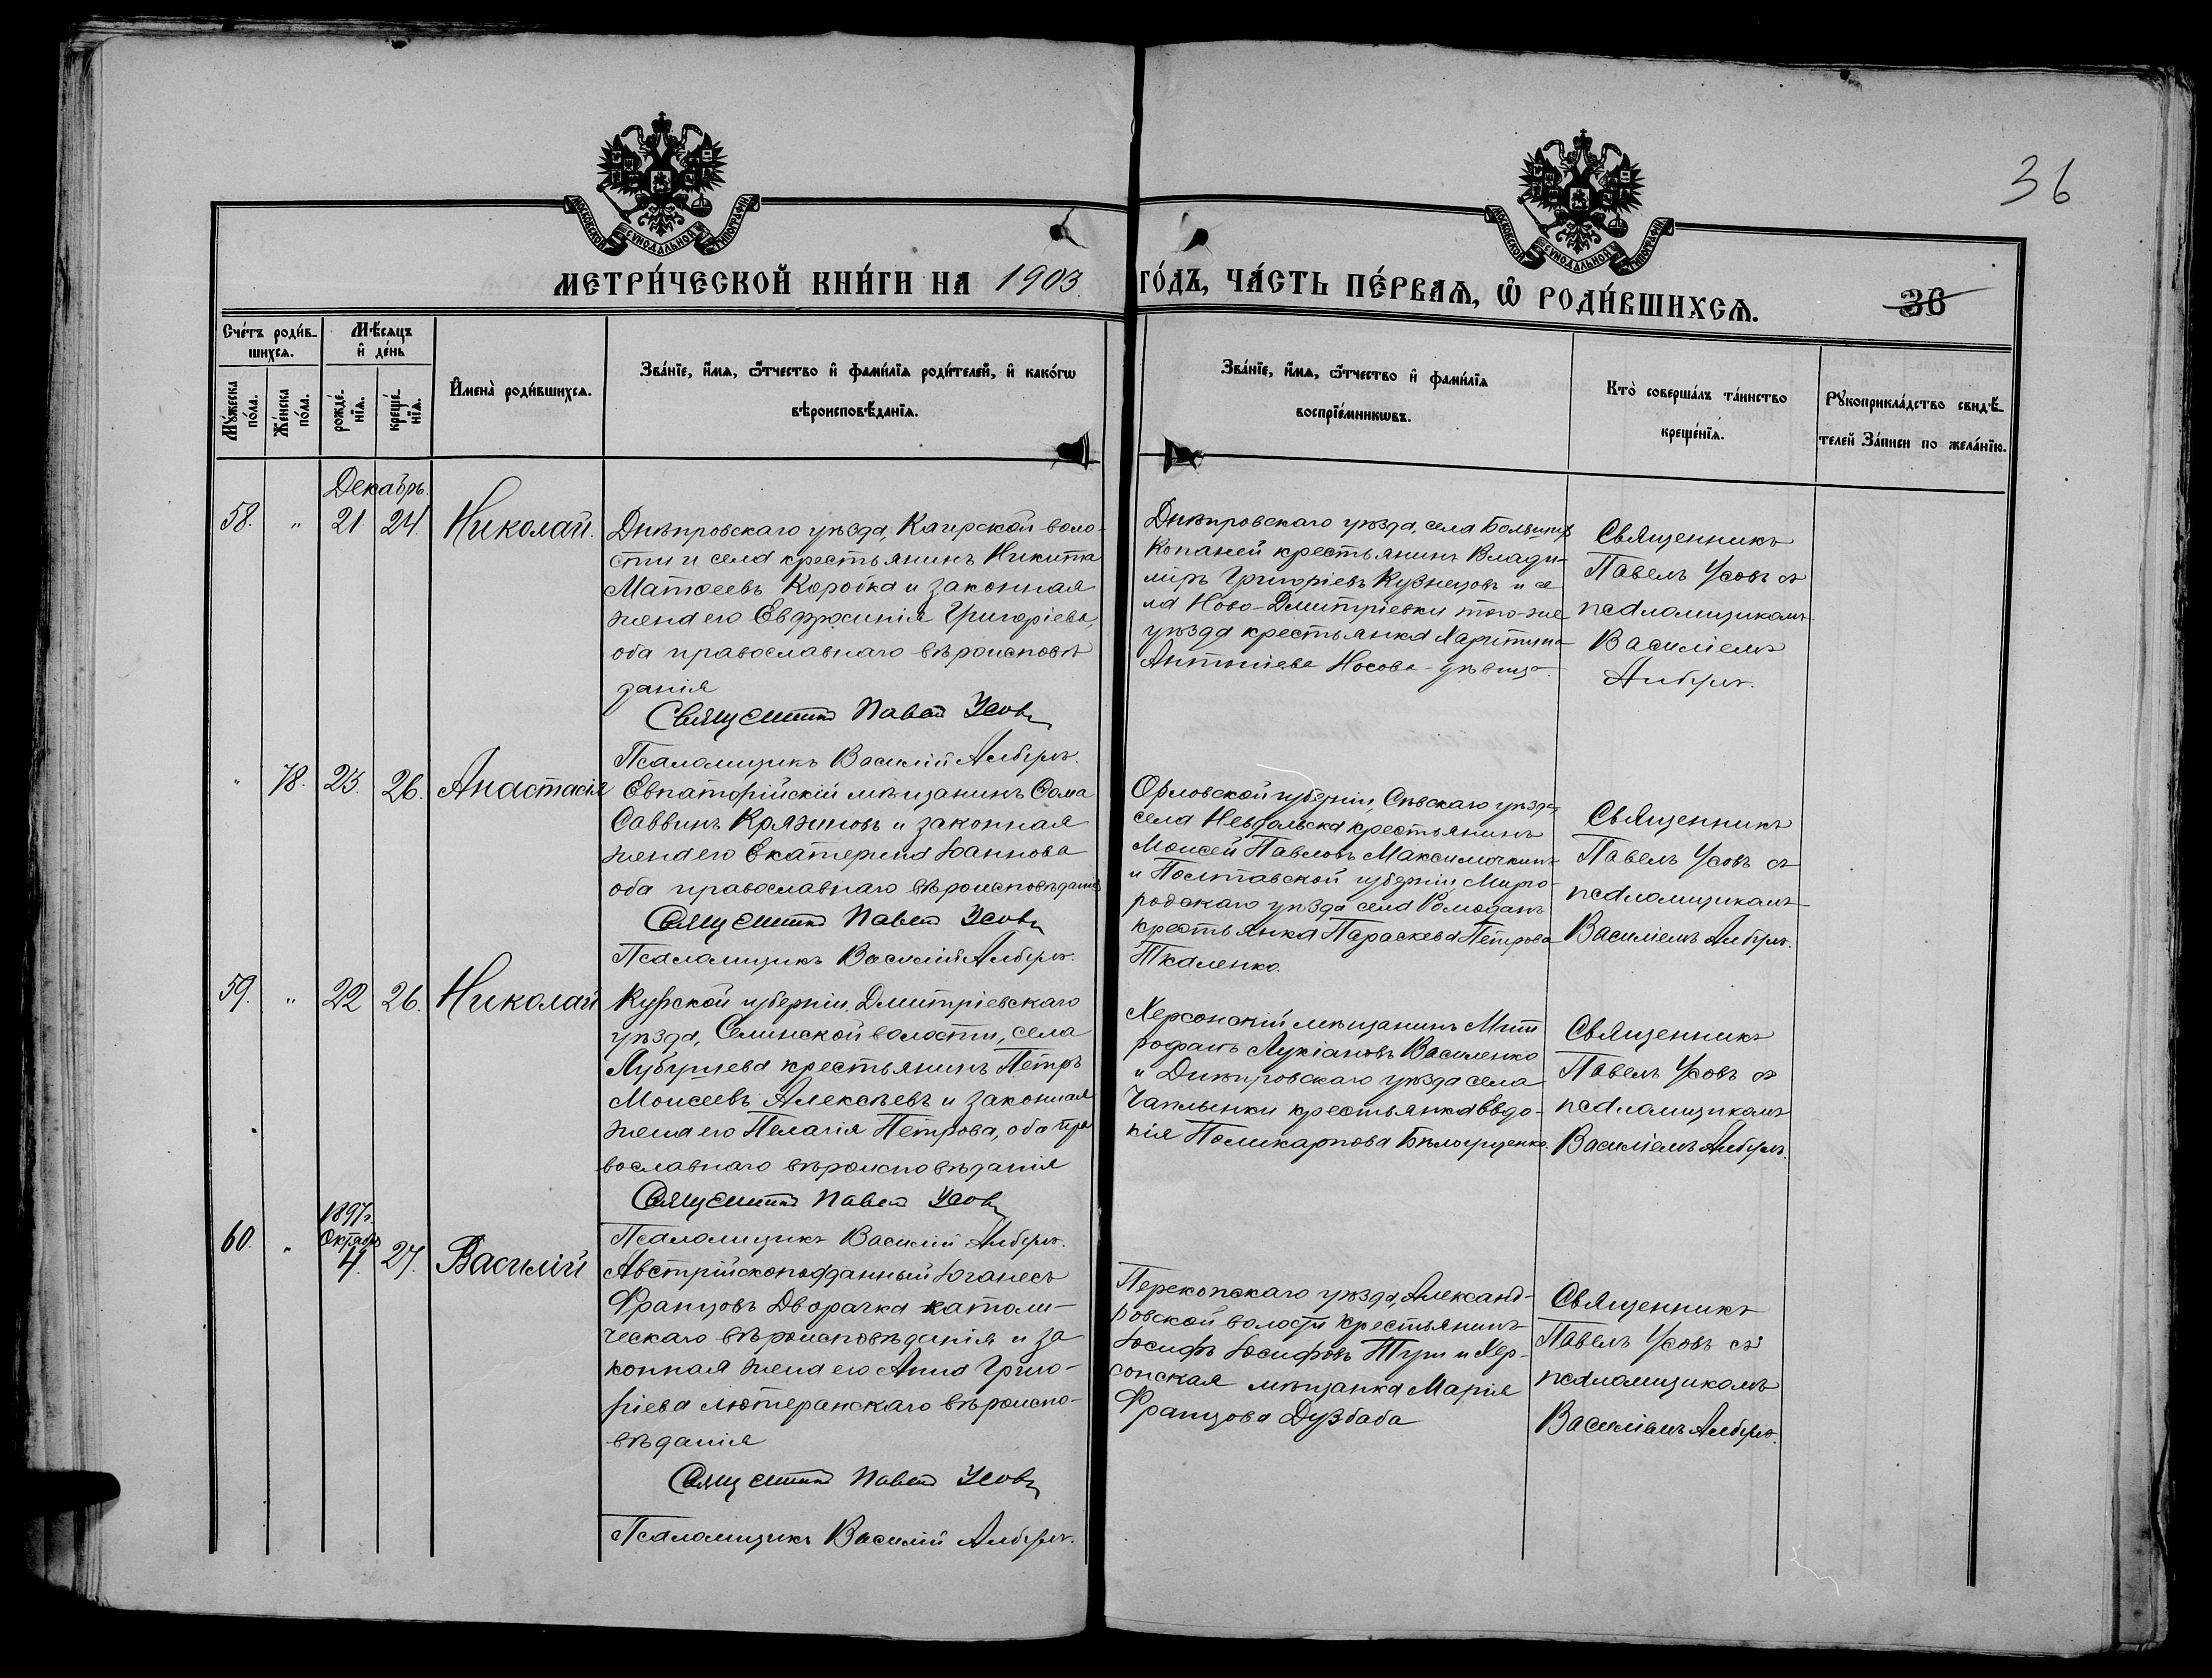 36
МОСКОВСКОЙ СѴНОДАЛЬНОЙ ТИПОГРАФІИ
МОСКОВСКОЙ СѴНОДАЛЬНОЙ ТИПОГРАФІИ
МЕТРИ́ЧЕСКОЙ КНИ́ГИ НА 1903 ГО́ДЪ, ЧА́СТЬ ПЕ́РВАѦ, Ѽ РОДИ́ВШИХСѦ.
36
Сче́тъ роди́в-
шихсѧ.
Мѣ́сѧцъ
и҆ де́нь
Мꙋ́жеска
по́ла.
Же́нска
по́ла.
рожде́-
нїѧ.
креще́-
нїѧ.
И҆мена̀ роди́вшихсѧ.
Зва́нїе, и҆́мѧ, ѻ҆́тчество и҆ фами́лїѧ роди́телей, и҆ како́гѡ
вѣроисповѣ́данїѧ.
Зва́нїе, и҆́мѧ, ѻ҆́тчество и҆ фами́лїѧ
воспрїе́мникѡвъ.
Кто̀ соверша́лъ та́инство
креще́нїѧ.
Рꙋкоприкла́дство свидѣ́-
телей за́писи по жела́нїю.
Декабрь.
58. " 21 24. Николай.
Днѣпровскаго уѣзда, Каирской воло-
сти и села крестьянинъ Никита
Матѳеевъ Коробка и законная
жена его Евфросинія Григоріева,
оба православнаго вѣроисповѣ
данія
Священникъ Павелъ Усовъ
Псаломщикъ Василій Алберъ.
Днѣпровскаго уѣзда, села Большихъ
Копаней крестьянинъ Влади-
міръ Григоріевъ Кузнецовъ и се
ла Ново-Дмитріевки того-же
уѣзда крестьянка Харитина
Антоніева Носова - дѣвица.
Священникъ
Павелъ Усовъ съ
псаломщикомъ
Василіемъ
Алберъ.
" 78. 23. 26. Анастасія
Евпаторійскій мѣщанинъ Ѳома
Саввинъ Кряжиновъ и законная
жена его Екатерина Іоаннова
оба православнаго вѣроисповѣданія
Священникъ Павелъ Усовъ
Псаломщикъ Василій Алберъ.
Орловской губерніи, Сѣвскаго уѣзда,
села Невдольска крестьянинъ
Моисей Павловъ Максимочкинъ
и Полтавской губерніи, Мирго-
родскаго уѣзда села Ромоданъ
крестьянка Параскева Петрова
Ткаленко.
Священникъ
Павелъ Усовъ съ
псаломщикомъ
Василіемъ Алберъ.
59. " 22 26. Николай
Курской губерніи, Дмитріевскаго
уѣзда, Селинской волости, села
крестьянинъ Петръ
Моисеевъ Алексѣевъ и законная
жена его Пелагія Петрова, оба пра
вославнаго вѣроисповѣданія
Священникъ Павелъ Усовъ
Псаломщикъ Василій Алберъ.
Херсонскій мѣщанинъ Мит
рофанъ Лукіановъ Василенко
и Днѣпровскаго уѣзда села
Чаплынки крестьянка Евдо-
кія Поликарпова
Священникъ
Павелъ Усовъ съ
псаломщикомъ
Василіемъ Алберъ.
60. " 1897г.
Октябрь
4. 27. Василій
Австрійскоподданный Іоганесъ
Францовъ Дворачка католи-
ческаго вѣроисповѣданія и за
конная жена его Анна Григо-
ріева лютеранскаго вѣроиспо-
вѣданія
Священникъ Павелъ Усовъ
Псаломщикъ Василій Алберъ.
Перекопскаго уѣзда, Александ-
ровской волости крестьянинъ
Іосифъ Іосифовъ и Хер-
сонская мѣщанка Марія
Францова Дузбаба
Священникъ
Павелъ Усовъ съ
псаломщикомъ
Василіемъ Алберъ.